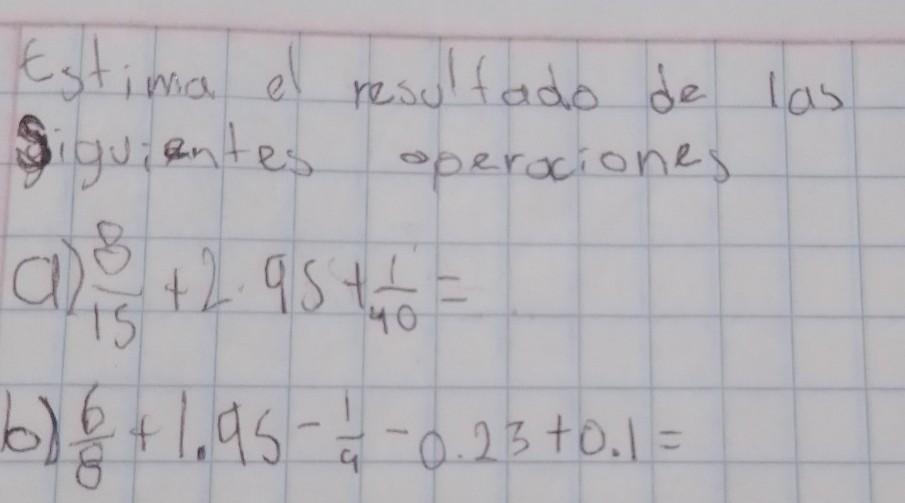 Estima el resultado de las
siguientes operaciones
a) 8/15 + 2.95 + 1/40 =
b) 6/8 + 1.95 - 1/9 - 0.23 + 0.1 =